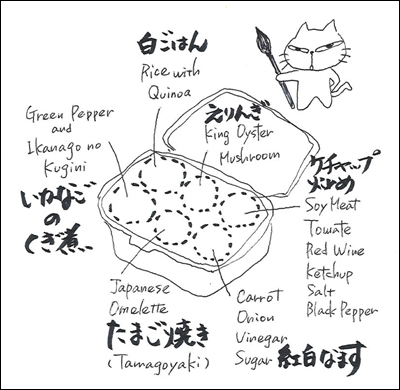 白ごはん
Rice with
Quinoa
Green Pepper
and
Ikanago no
Kugini
いかなご
の
くぎ煮
えりんぎ
King Oyster
Mushroom
ケチャップ
炒め
Soy Meat
Tomate
Red Wine
Ketchup
Salt
Black Pepper
Japanese
Omelette
たまご焼き
(Tamagoyaki)
Carrot
Onion
Vinegar
Sugar
紅白なます